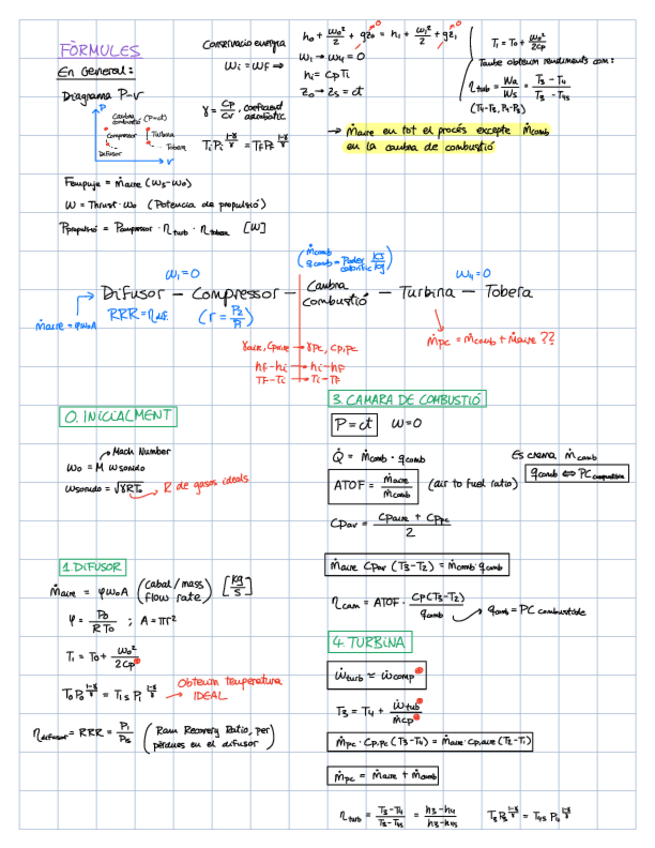 FÒRMULES
En General:
Diagrama P-v
P
Cambra combustió (P=ct)
Compressor
Turbina
Difusor
Tobera
v
Conservacio energia
Wi = WF ⇒
γ = Cp/Cv, coeficient adiabàtic
TiPi^((1-γ)/γ) = TFPF^((1-γ)/γ)
h0 + w0²/2 + gz0 = h1 + w1²/2 + gz1
0
0
W1 → W4 = 0
hi = CpTi
z0 → z5 = ct
T1 = T0 + w0²/2Cp
També obtenim rendiments com:
ηturb = Wa/Ws = (T3 - T4)/(T3 - T4s)
(T4-T5, P4-P5)
→ ṁaire en tot el procés excepte ṁcomb
en la cambra de combustió
Fempuje = ṁaire (W5-W0)
W = Thrust · W0 (Potencia de propulsió)
Ppropulsió = Pcompressor · ηturb · ηtobera [W]
(ṁcomb
qcomb = Poder calorífic KJ/Kg)
W1 = 0
W4 = 0
Difusor – Compressor – Cambra combustió – Turbina – Tobera
ṁaire = φW0A
RRR = ηdif.
(r = P2/P1)
ṁpc = ṁcomb + ṁaire ??
γaire, Cpaire → γpc, Cp,pc
hF-hi → hi-hF
TF-Ti → Ti-TF
0. INICIALMENT
Mach Number
W0 = M Wsonido
Wsonido = √γRT0 → R de gasos ideals
1. DIFUSOR
ṁaire = φW0A (Cabal/mass flow rate) [Kg/s]
φ = P0/RT0 ; A = πr²
T1 = T0 + w0²/2Cp
T0P0^((1-γ)/γ) = T1s P1^((1-γ)/γ) → Obtenim temperatura IDEAL
ηdifusor = RRR = P1/P1s (Ram Recovery Ratio, per pèrdues en el difusor)
3. CAMARA DE COMBUSTIÓ
P = ct W = 0
Q̇ = ṁcomb · qcomb
Es crema ṁcomb
qcomb ⇔ PC combustible
ATOF = ṁaire/ṁcomb (air to fuel ratio)
Cpav = (Cpaire + Cppc)/2
ṁaire Cpav (T3-T2) = ṁcomb · qcomb
ηcam = ATOF · Cp(T3-T2)/qcomb → qcomb = PC combustible
4. TURBINA
Ẇturb ≃ Ẇcomp
T3 = T4 + Ẇturb/ṁCp
ṁpc · Cp,pc (T3-T4) = ṁaire · Cp,aire (T2-T1)
ṁpc = ṁaire + ṁcomb
ηturb = (T3-T4)/(T3-T4s) = (h3-h4)/(h3-h4s)
T3P3^((1-γ)/γ) = T4s P4^((1-γ)/γ)